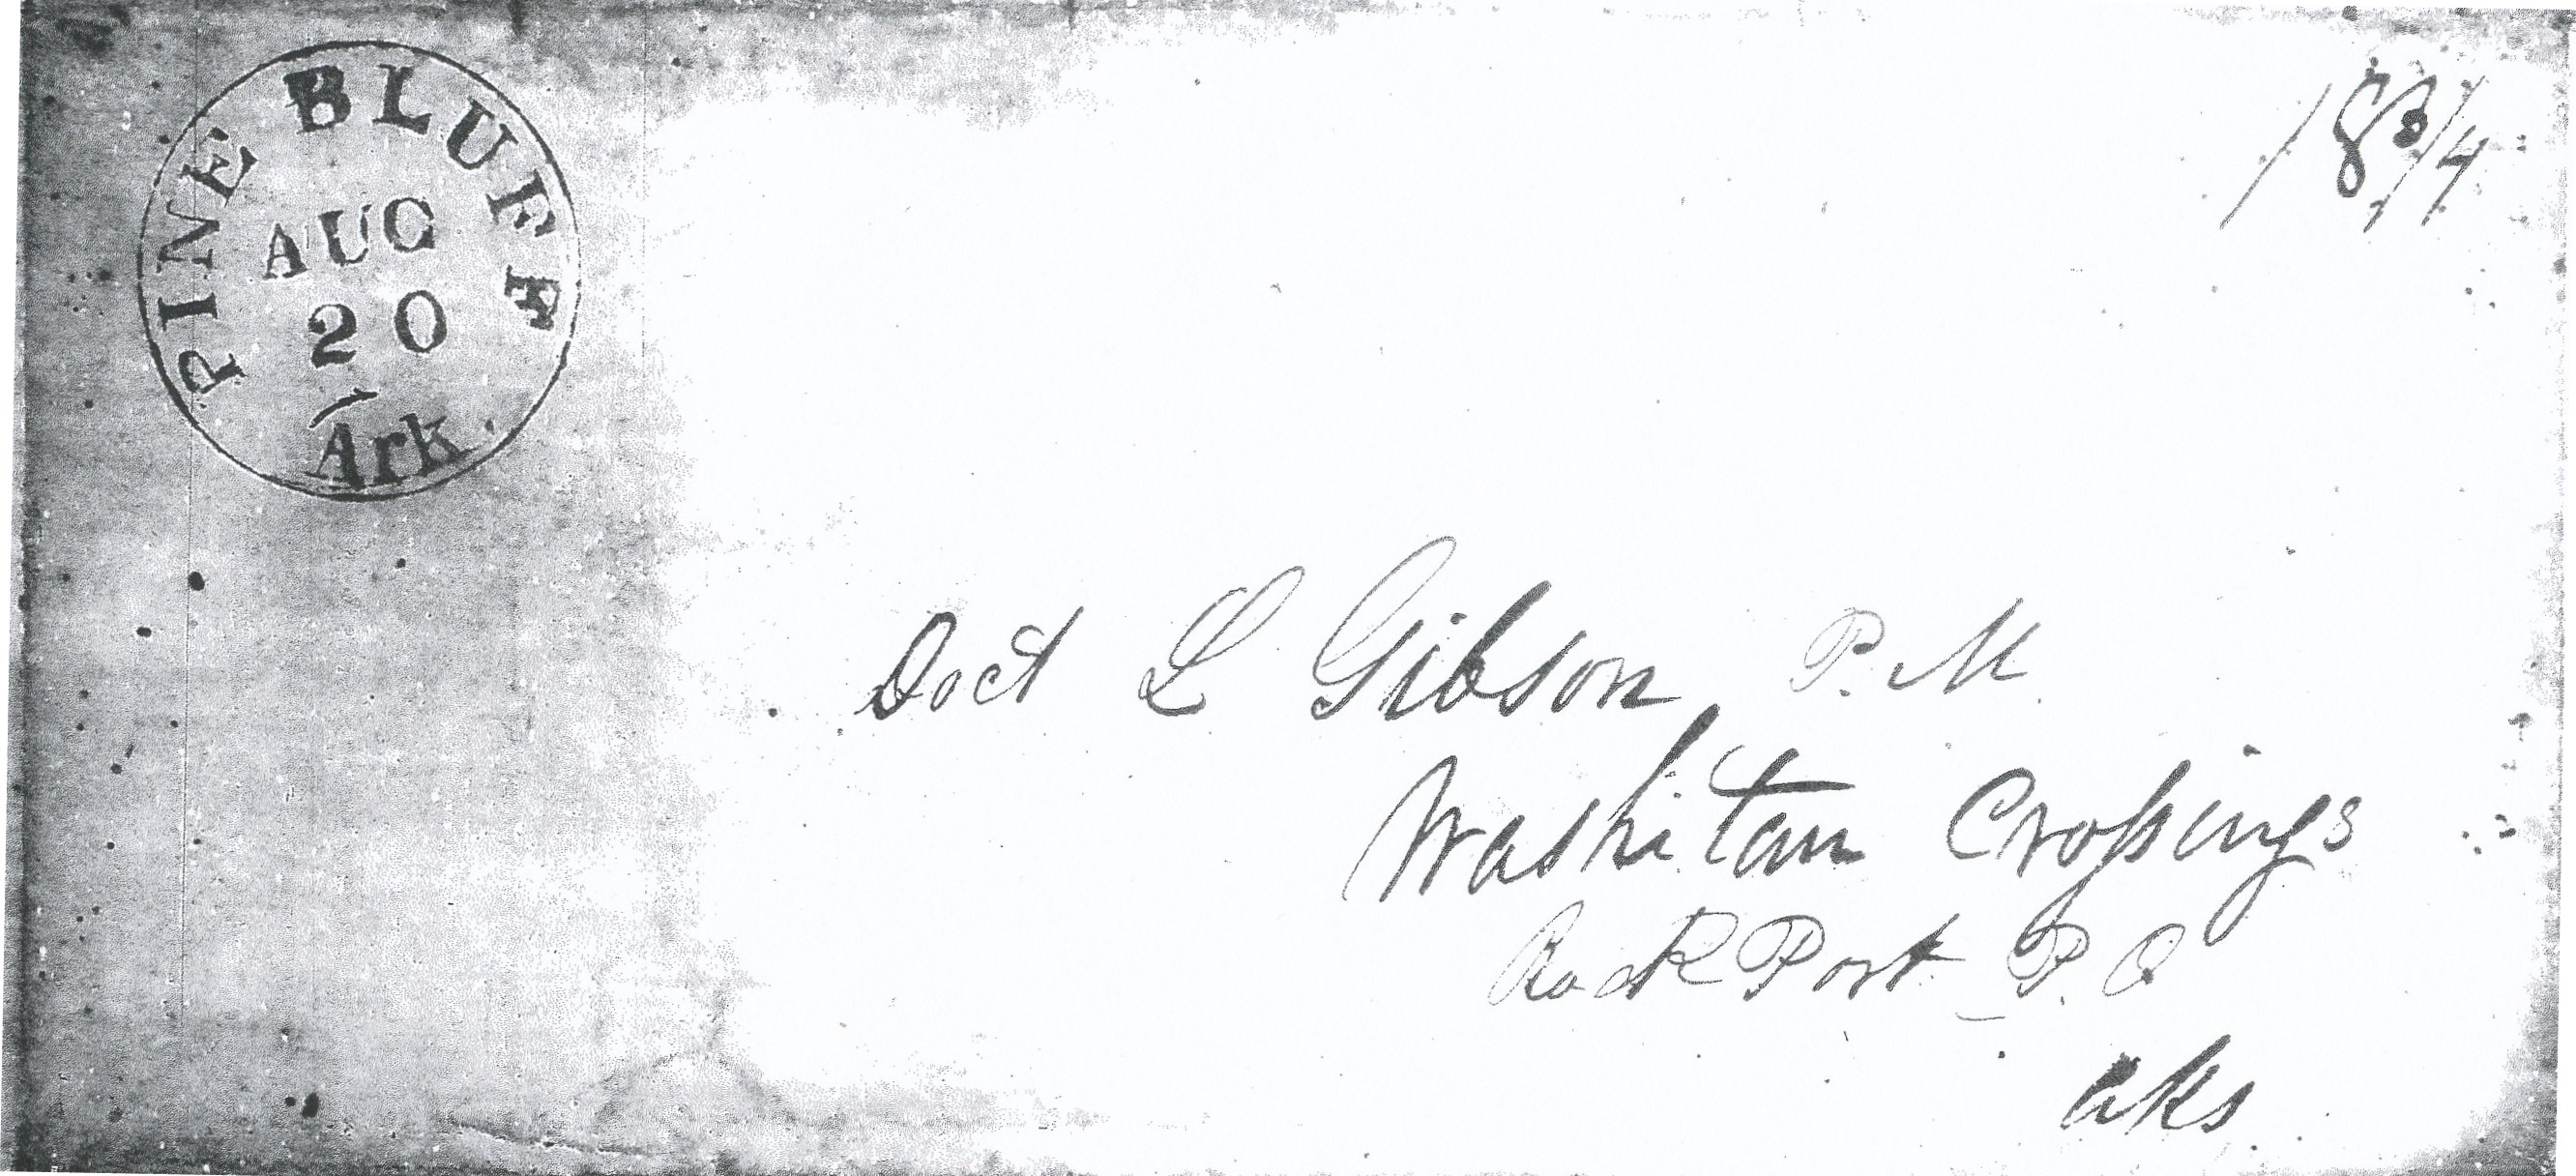 PINE BLUFF
AUG
20
Ark.
18 3/4
Doct L Gibson P. M.
Washitau Croſsings
Rock Port P. O
aks